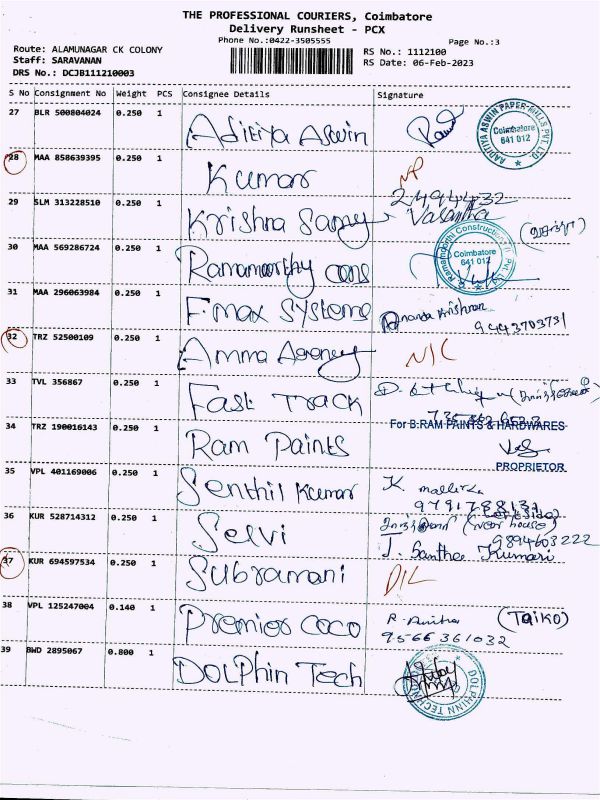 THE PROFESSIONAL COURIERS, Coimbatore
Delivery Runsheet - PCX
Phone No.:0422-3505555
Page No.:3
Route: ALAMUNAGAR CK COLONY
RS No.: 1112100
Staff: SARAVANAN
RS Date: 06-Feb-2023
DRS No.: DCJB111210003
S No Consignment No Weight PCS Consignee Details Signature
27 BLR 500804024 0.250 1 Aditiya Aswin
AADITYA ASWIN PAPER MILLS PVT. LTD. Coimbatore 641 012
28 MAA 858639395 0.250 1 Kumar NP
29 SLM 313228510 0.250 1 Krishna Samy 2494432
Vasantha
30 MAA 569286724 0.250 1 Ramamoorthy cons
Coimbatore 641 012
31 MAA 296063984 0.250 1 F-max Systems Ananda Krishnan
9443703731
32 TRZ 52500109 0.250 1 Amma Agency N/C
33 TVL 356867 0.250 1 Fast Track
34 TRZ 190016143 0.250 1 Ram Paints For B.RAM PAINTS & HARDWARES
PROPRIETOR
35 VPL 401169006 0.250 1 Senthil Kumar K.
36 KUR 528714312 0.250 1 Selvi (near house)
9894603222
J. Santha Kumari
37 KUR 694597534 0.250 1 Subramani D/L
38 VPL 125247004 0.140 1 Premier coco R. Anitha (Taiko)
9566361032
39 BWD 2895067 0.800 1 DOLPhin Tech